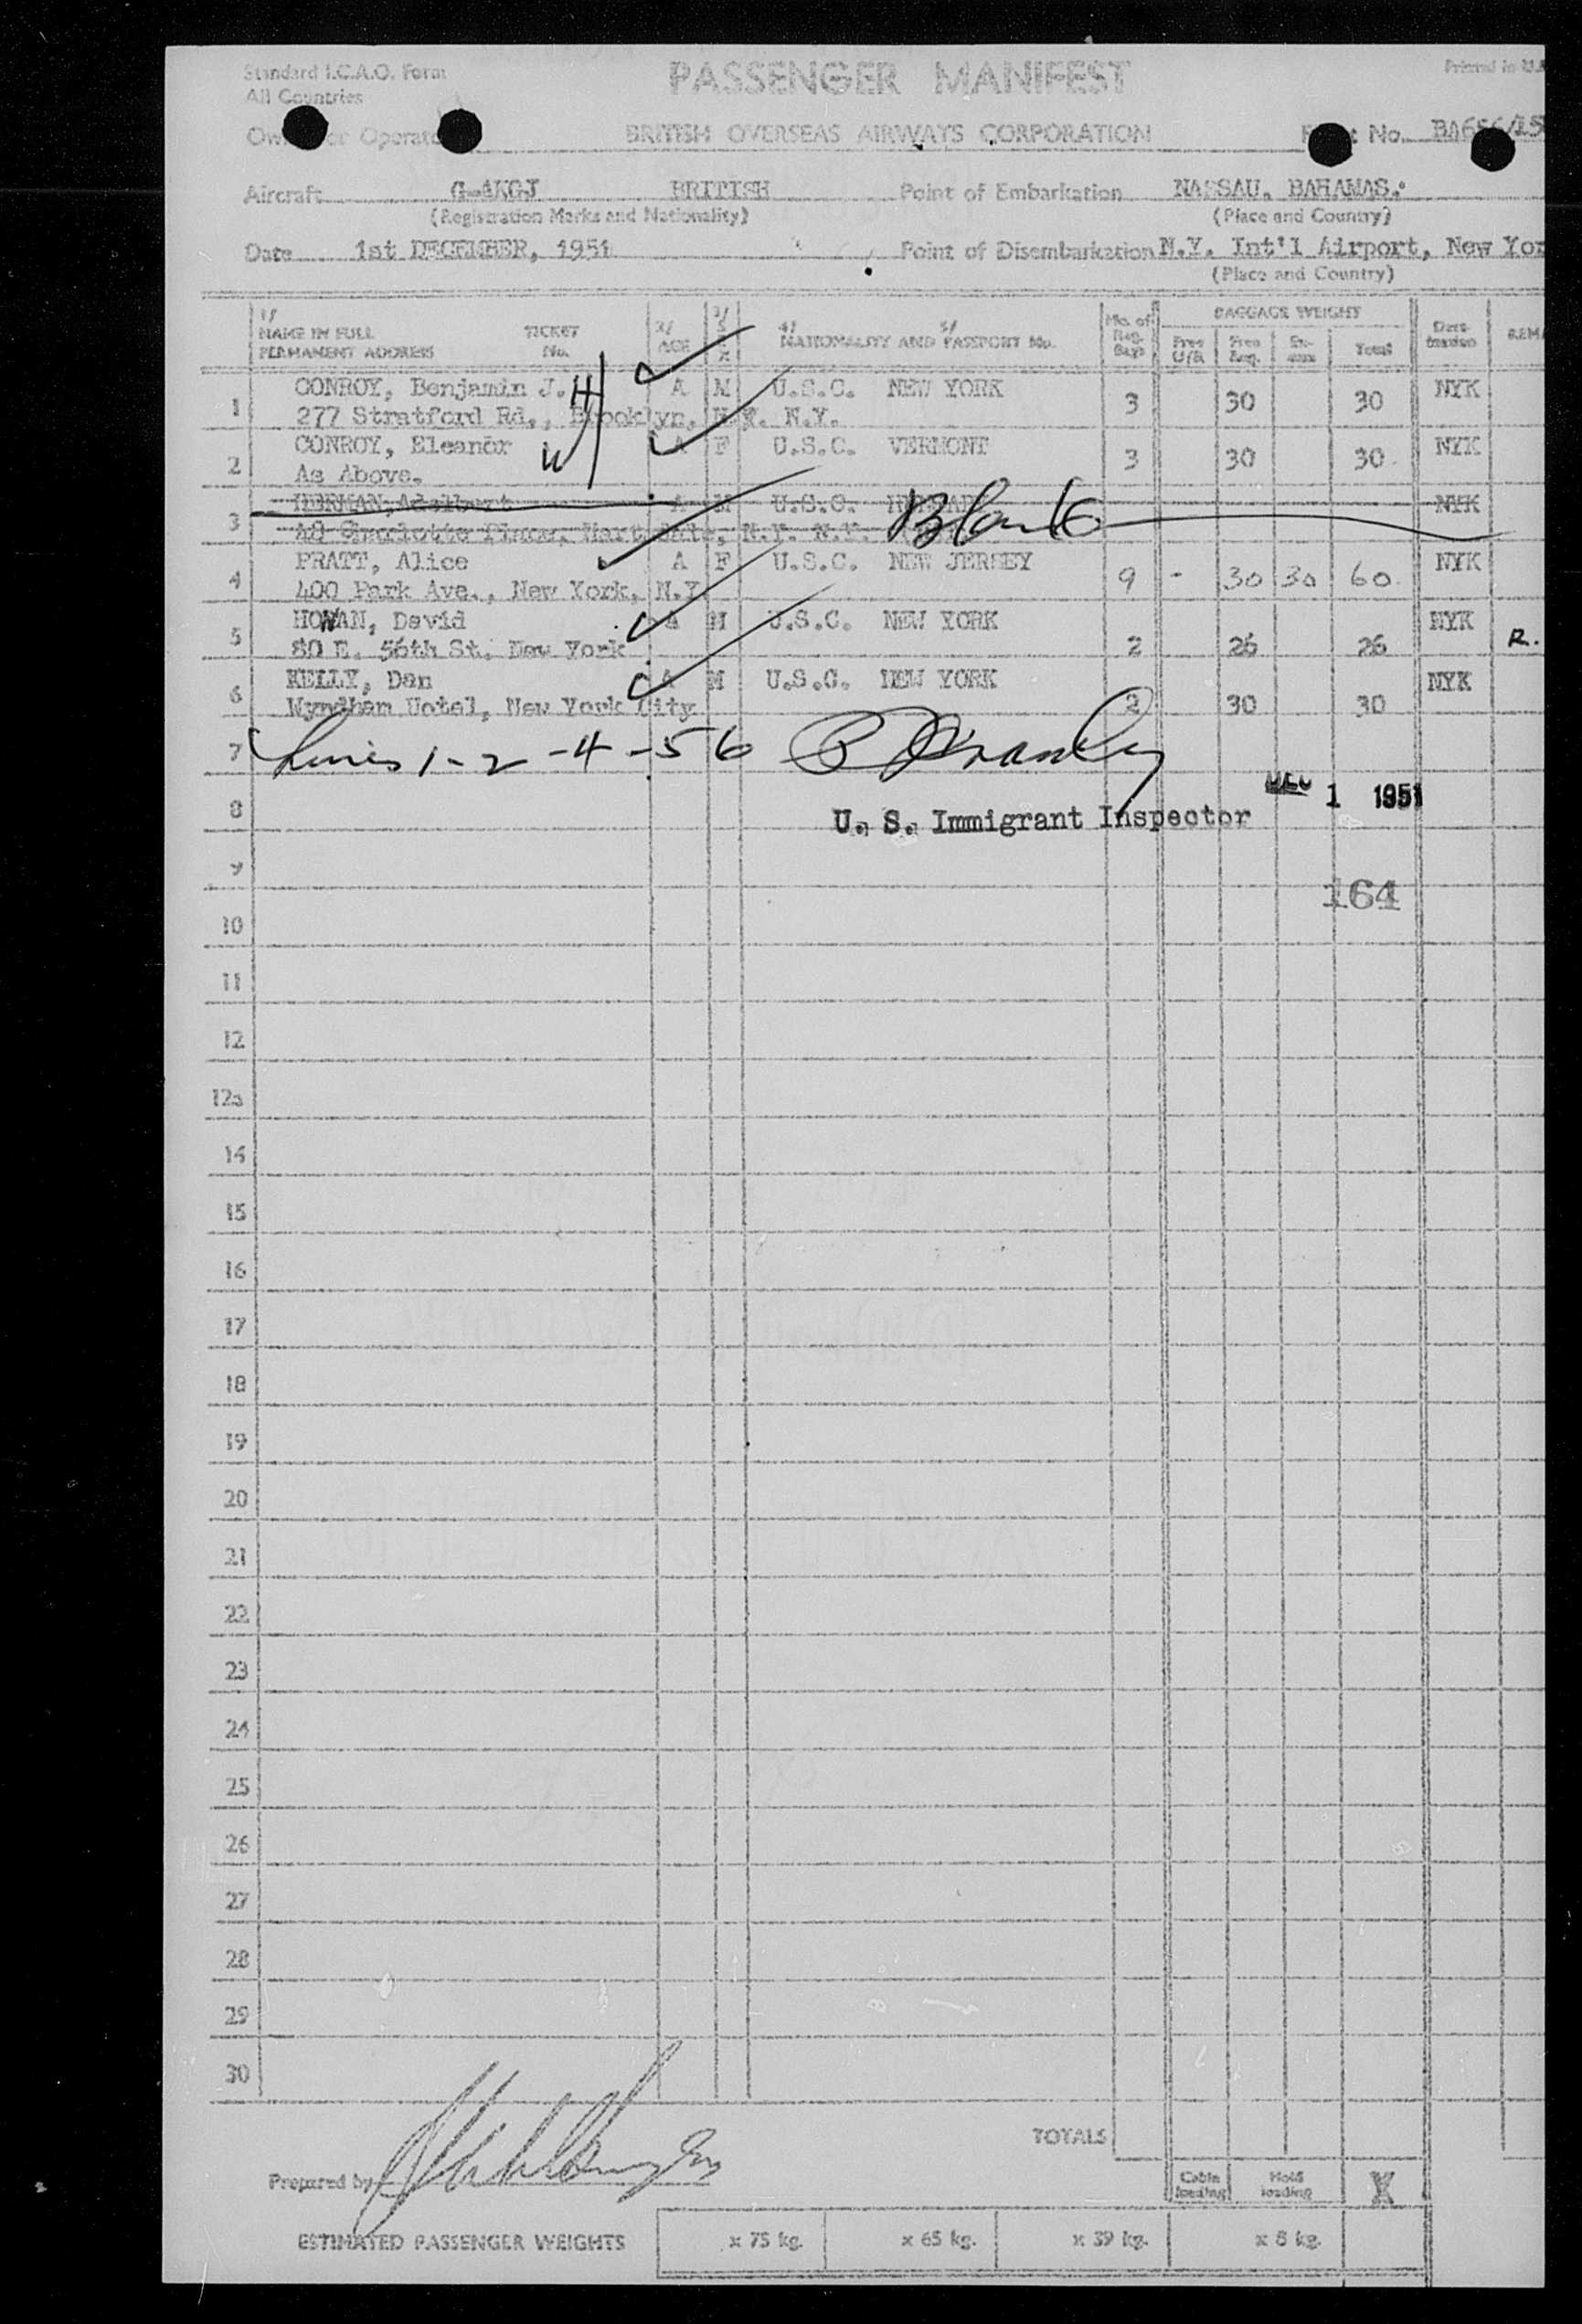 Standard I.C.A.O. Form
All Countries
PASSENGER MANIFEST
Printed in
BRITISH OVERSEAS AIRWAYS CORPORATION
No.
Aircraft G-AKGJ BRITISH Point of Embarkation NASSAU, BAHAMAS.
(Registration Marks and Nationality) (Place and Country)
Date 1st DECEMBER, 1951 Point of Disembarkation N.Y. Int'l Airport, New Yor
(Place and Country)
1/ NAME IN FULL PERMANENT ADDRESS TICKET No. 2/ AGE 3/ SEX 4/ 5/ NATIONALITY AND PASSPORT No. No. of BAGGAGE WEIGHT Total Destination REMA
1 CONROY, Benjamin J. H A M U.S.C. NEW YORK 3 30 30 NYK
277 Stratford Rd., Brooklyn, N.Y. N.Y.
2 CONROY, Eleanor W A F U.S.C. VERMONT 3 30 30 NYK
As Above.
3 A M U.S.C. Blank NYK
4 PRATT, Alice A F U.S.C. NEW JERSEY 9 - 30 30 60 NYK
400 Park Ave., New York, N.Y.
5 David A M U.S.C. NEW YORK 2 26 26 NYK R.
80 E. 56th St. New York
6 KELLY, Dan A M U.S.C. NEW YORK 2 30 30 NYK
Wyndham Hotel, New York City
7 Lines 1-2-4-5 6
8 U. S. Immigrant Inspector DEC 1 1951
9
164
10
11
12
12a
14
15
16
17
18
19
20
21
22
23
24
25
26
27
28
29
30
TOTALS
Prepared by
Cabin loading Hold loading X
ESTIMATED PASSENGER WEIGHTS x 75 kg. x 65 kg. x 39 kg. x 8 kg.